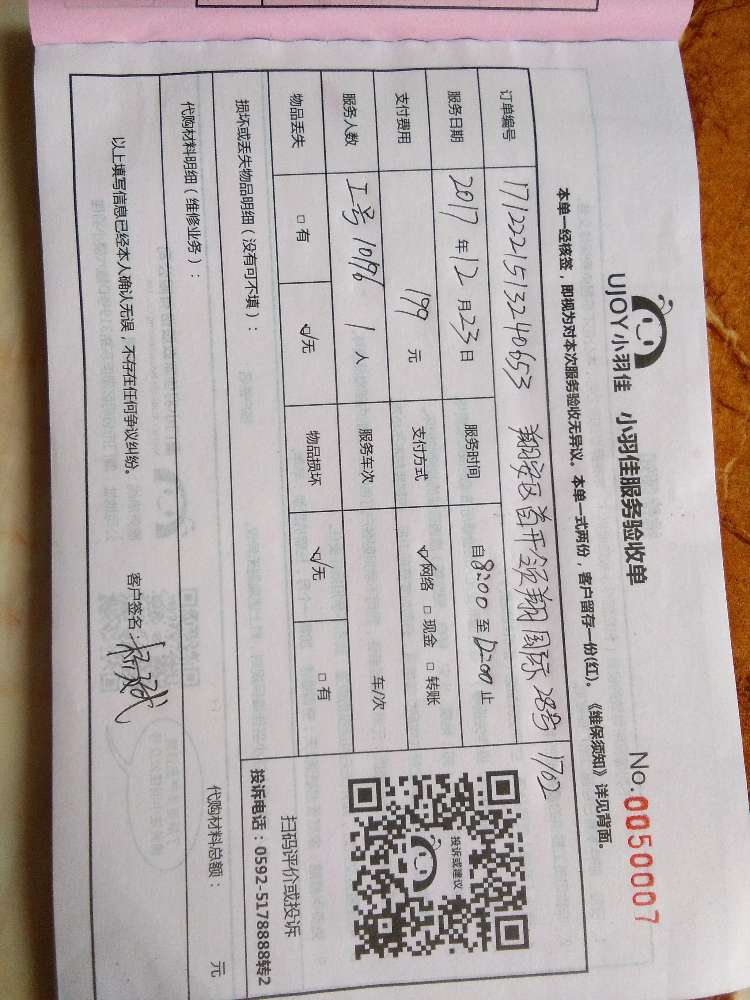 UJOY小羽佳 小羽佳服务验收单 No.0050007
本单一经核签，即视为对本次服务验收无异议。本单一式两份，客户留存一份(红)。《维保须知》详见背面。
订单编号 1712221513240653 翔安区首开领翔国际28号1702
服务日期 2017年12月23日 服务时间 自8:00至12:00止
支付费用 199元 支付方式 ☑网络 □现金 □转账
服务人数 工号10196 1人 服务车次 车/次
物品丢失 □有 ☑无 物品损坏 ☑无 □有
投诉或建议
扫码评价或投诉
损坏或丢失物品明细（没有可不填）： 投诉电话：0592-5178888转2
代购材料明细（维修业务）： 代购材料总额： 元
以上填写信息已经本人确认无误，不存在任何争议纠纷。 客户签名：杨斌